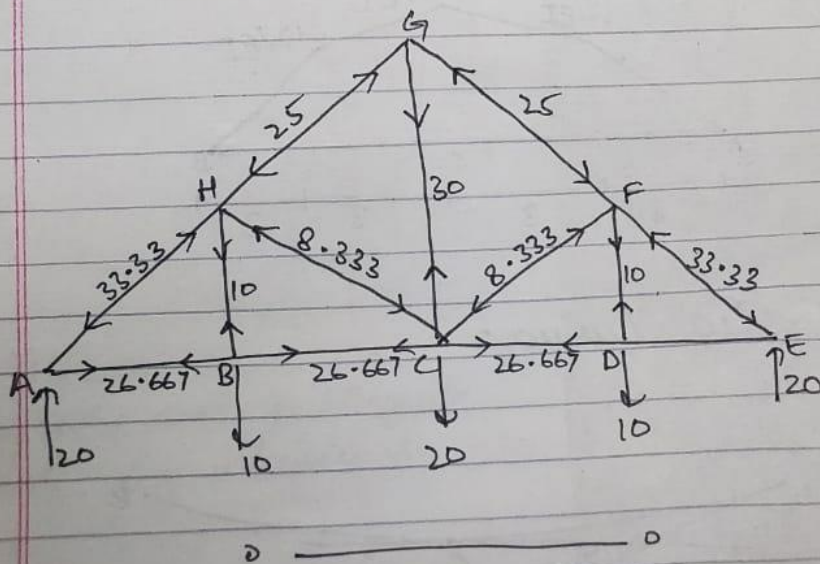 G
25 25
H F
30
33.33 8.333 8.333 33.33
10 10
A 26.667 B 26.667 C 26.667 D E
20 10 20 10 20